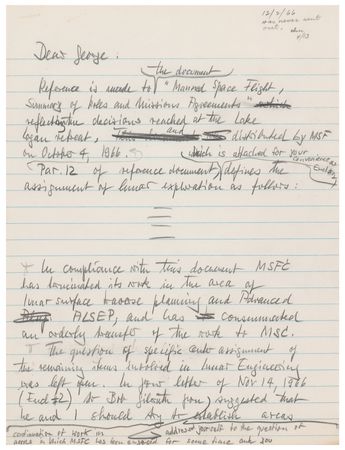 12/2/66
was never sent
out.
Dear George:
the document
Reference is made to "Manned Space Flight,
Summary of Roles and Missions Agreements" which
reflecting decisions reached at the Lake
Logan retreat, and distributed by MSF
on October 4, 1966.
which is attached for your
convenience
Par. 12 of reference document, defines the
assignment of lunar exploration as follows:
In compliance with this document MSFC
has terminated its work in the area of
lunar surface traverse planning and Advanced
ALSEP, and has consummated
an orderly transfer of the work to MSC.
The question of specific center assignment of
the remaining items involved in Lunar Engineering
was left open. In your letter of Nov 14, 1966
(Encl #2) to Bob Gilruth you suggested that
he and I should try to establish areas
continuation of work in addressed yourself to the question of
areas in which MSFC has been engaged for some time and you